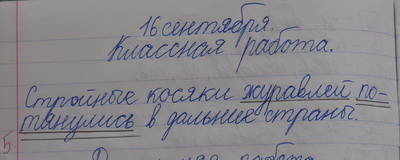 16 сентября.
Классная работа.
Стройные косяки журавлей по-
тянулись в дальние страны.
5
работа